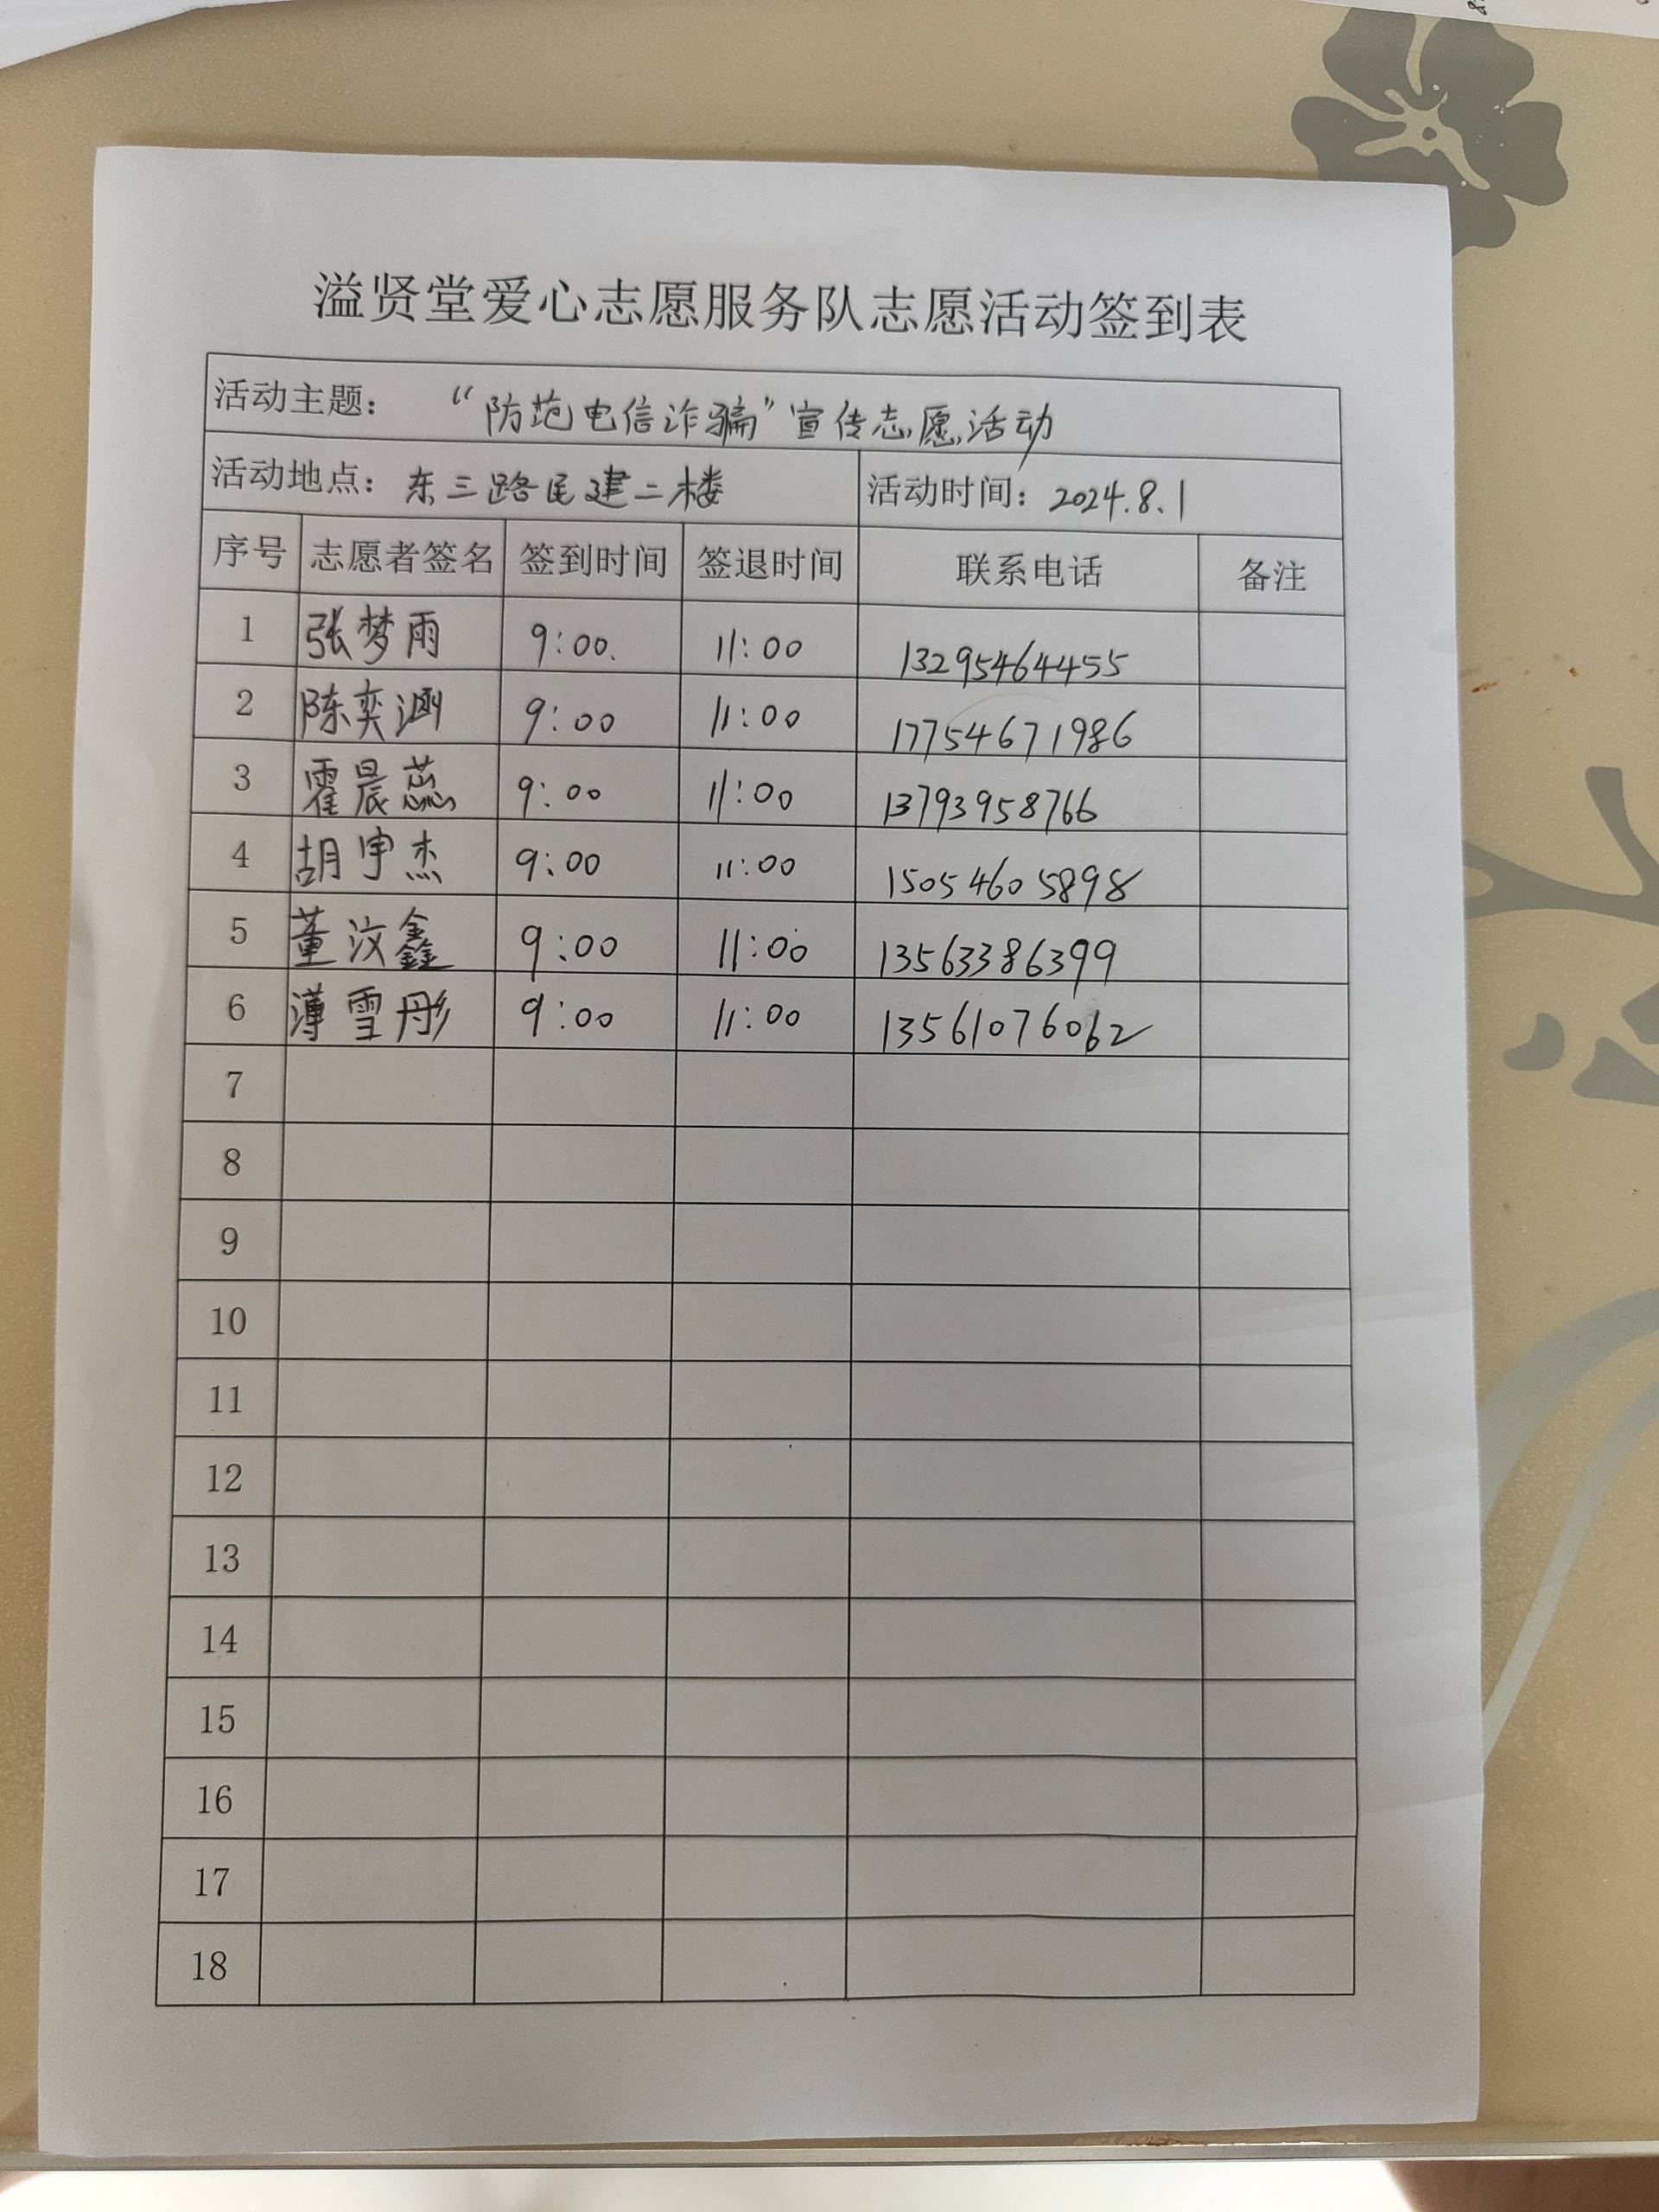 溢贤堂爱心志愿服务队志愿活动签到表
活动主题： “防范电信诈骗”宣传志愿活动
活动地点：东三路民建二楼 活动时间：2024.8.1
序号 志愿者签名 签到时间 签退时间 联系电话 备注
1 张梦雨 9:00. 11:00 13295464455
2 陈奕涵 9:00 11:00 17754671986
3 霍晨蕊 9:00 11:00 13793958766
4 胡宇杰 9:00 11:00 15054605898
5 董汶鑫 9:00 11:00 13563386399
6 薄雪彤 9:00 11:00 13561076062
7
8
9
10
11
12
13
14
15
16
17
18